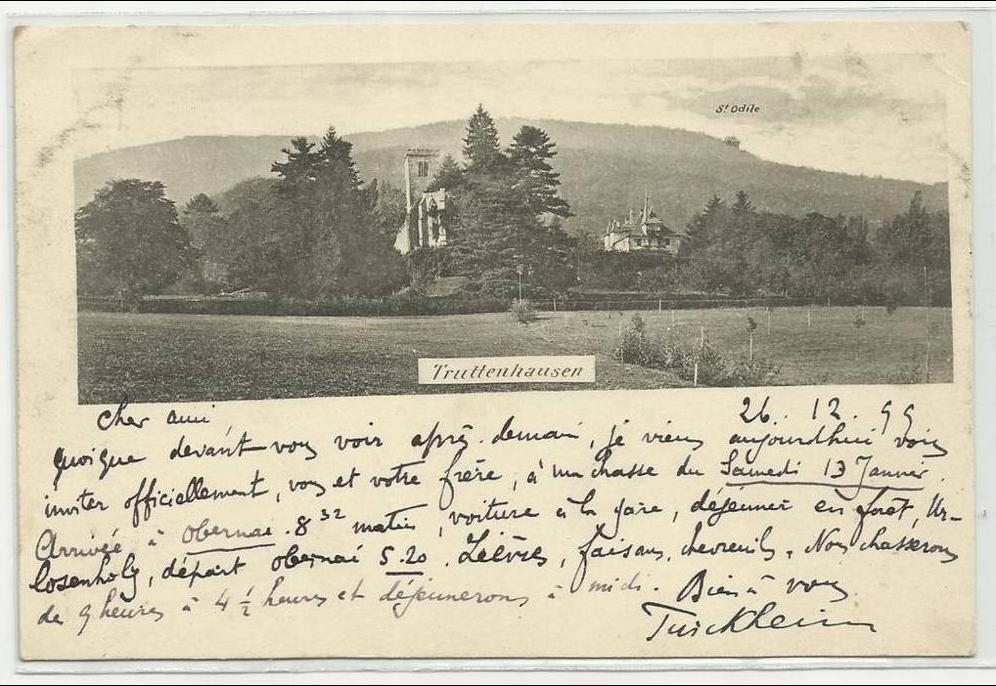 St Odile
Truttenhausen
Cher ami
26. 12. 99
quoique devant vous voir après-demain, je viens aujourdhui vous
inviter officiellement, vous et votre frère, à ma chasse du Samedi 13 Janvier.
Arrivée à Obernai 8 32 matin, voiture à la gare, déjeuner en forêt, Ur-
losenholz, départ Obernai 5.20. Lièvres, faisans, chevreuils. Nous chasserons
de 9 heures à 4 ½ heures et déjeunerons à midi. Bien à vous
Turckheim